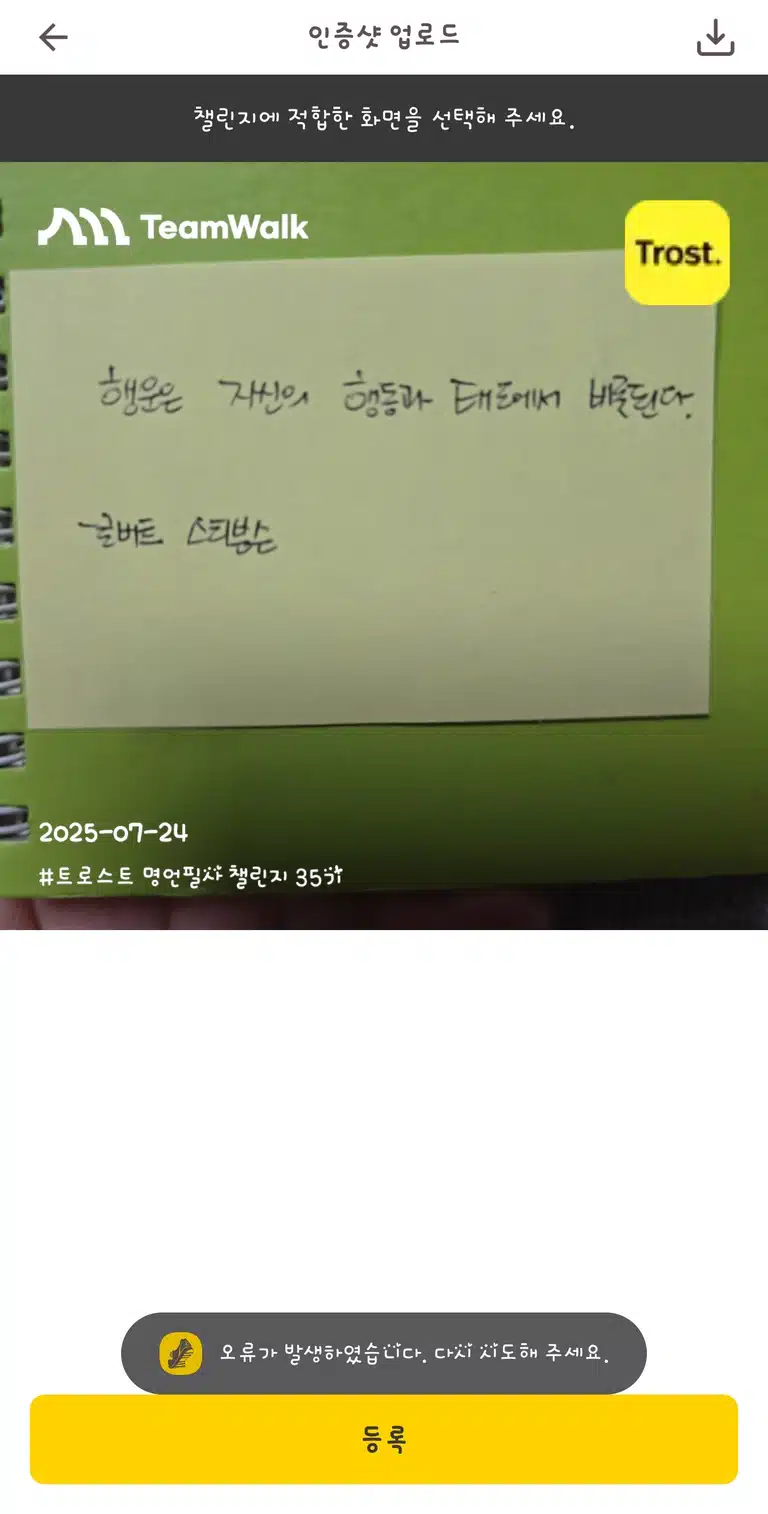 인증샷 업로드
챌린지에 적합한 화면을 선택해 주세요.
TeamWalk
Trost.
행운은 자신의 행동과 태도에서 비롯된다.
길버트 스티븐슨
2025-07-24
#트로스트 명언필사 챌린지 35기
오류가 발생하였습니다. 다시 시도해 주세요.
등록